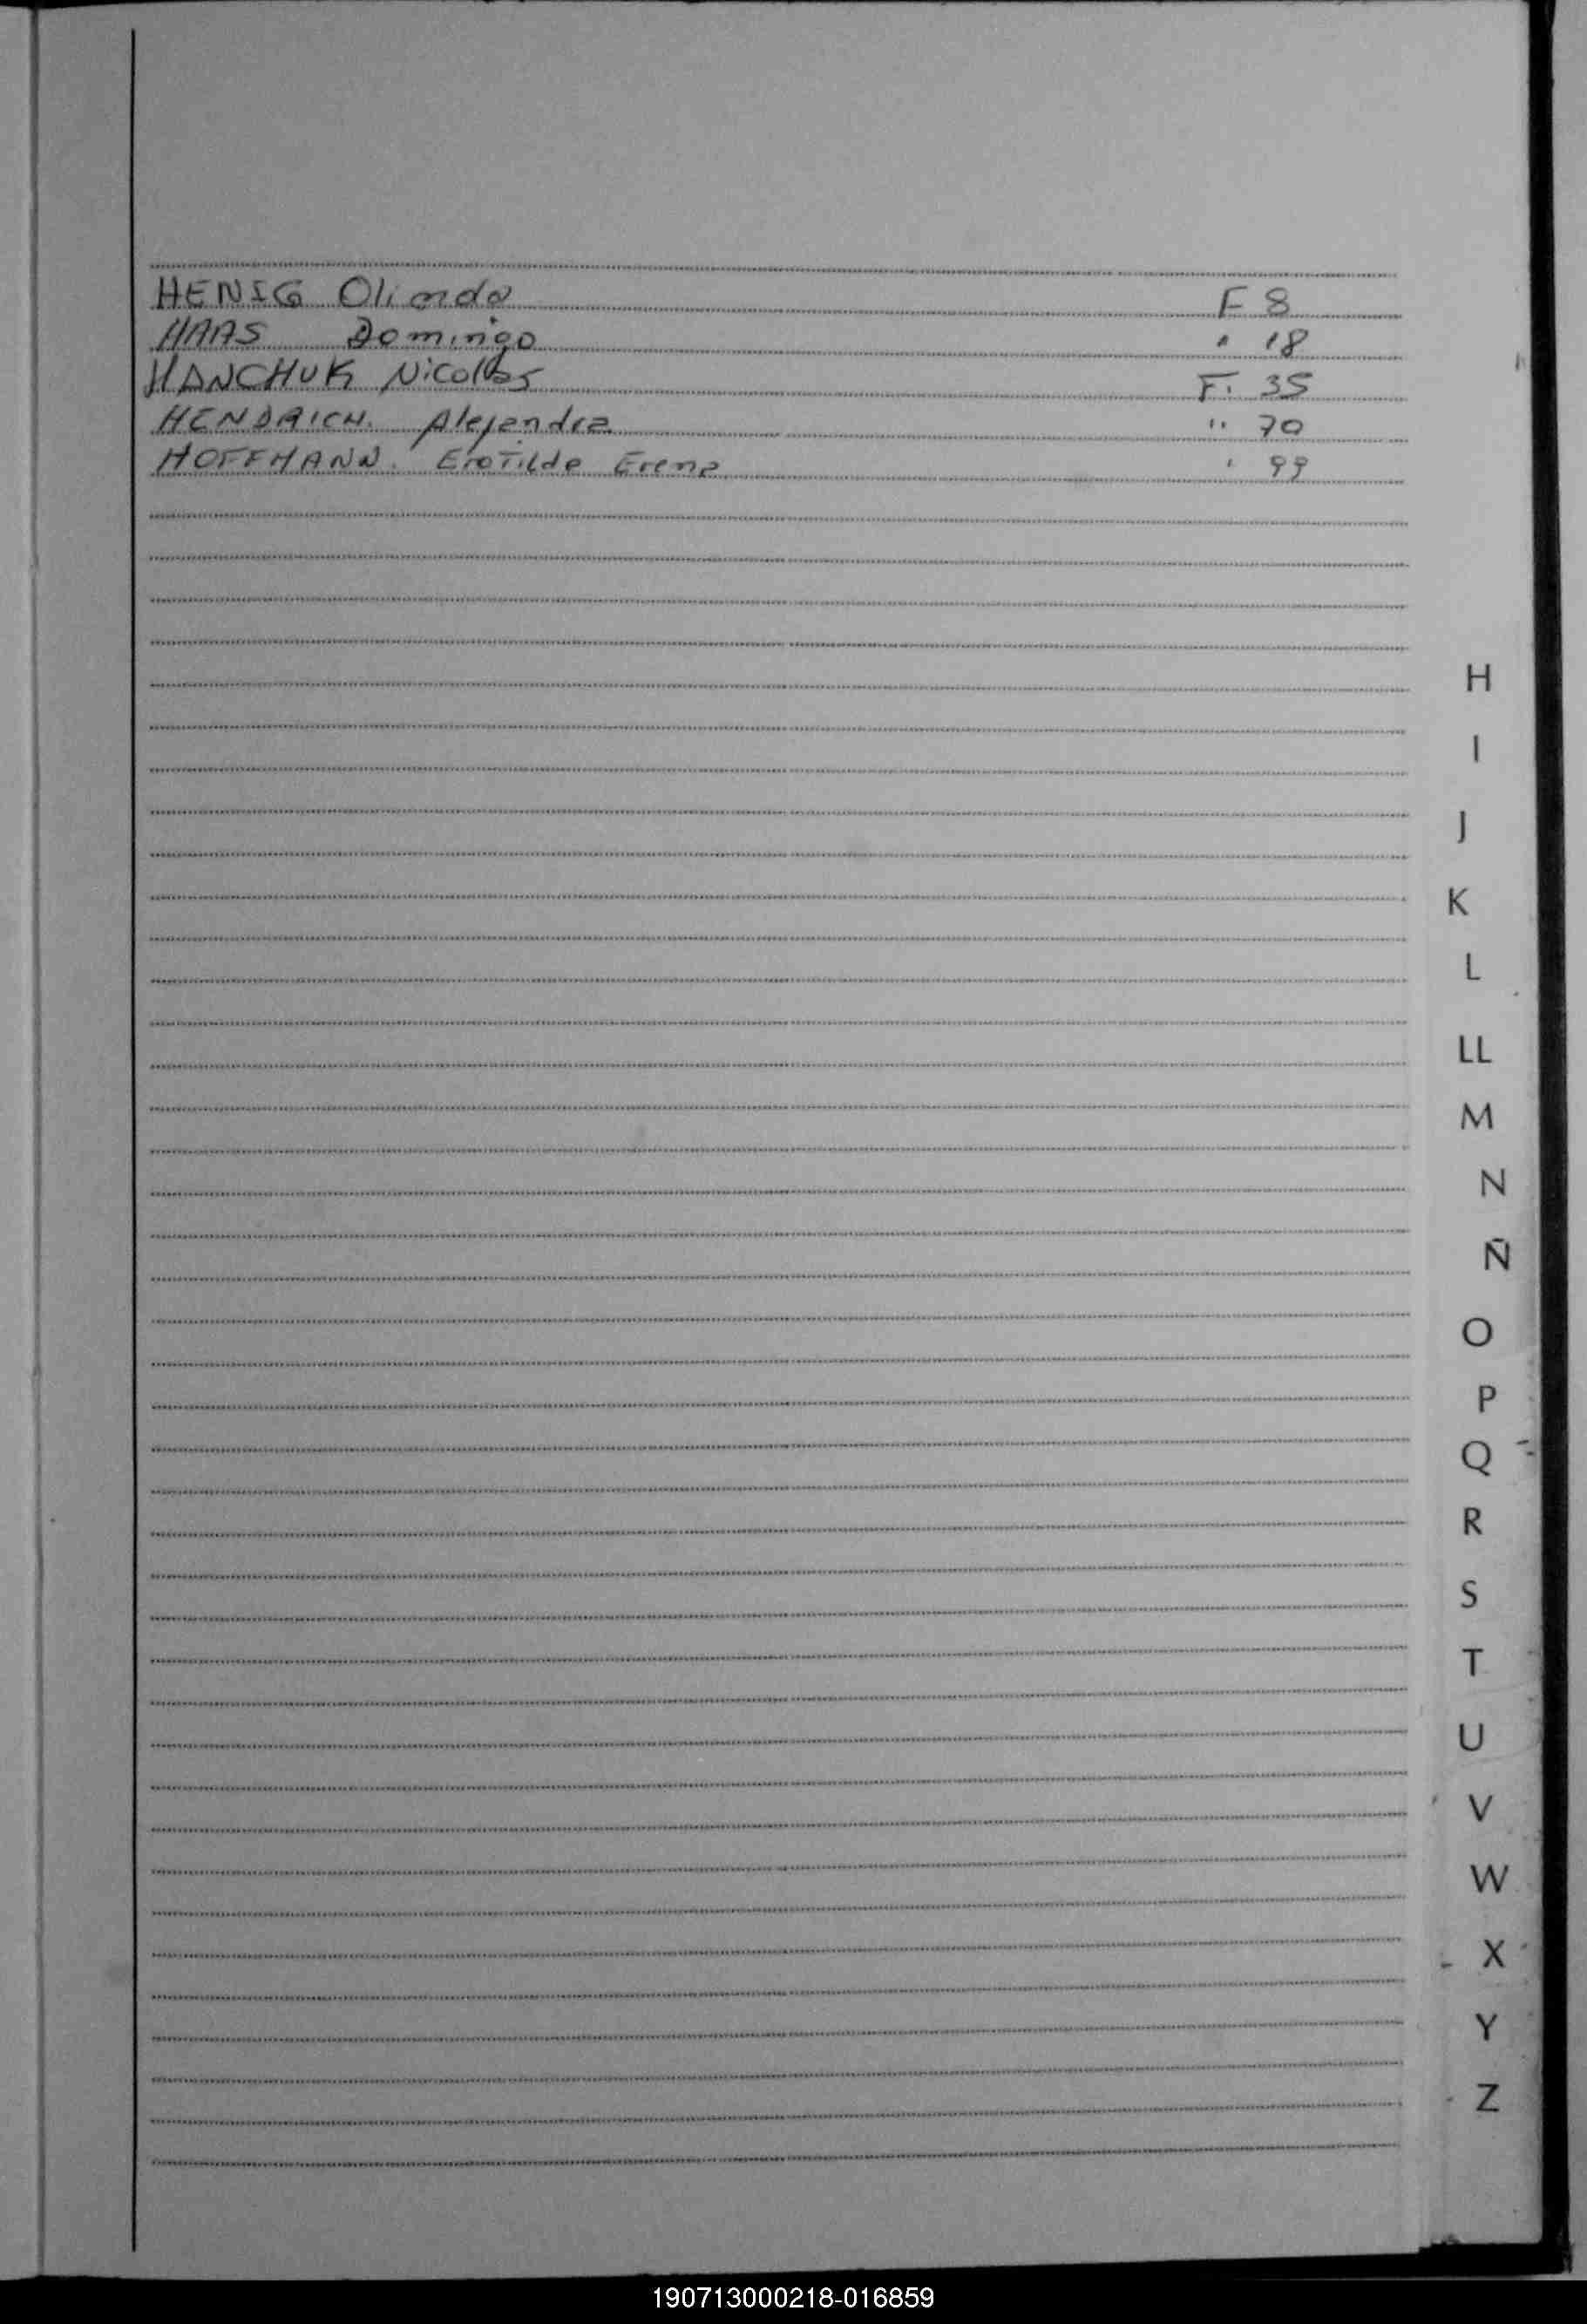 HENIG Olindo F 8
HAAS Domingo " 18
HANCHUK Nicolas F. 35
HENDRICH. Alejandra " 70
HOFFMANN. Erotilde Erena " 99
H
I
J
K
L
LL
M
N
Ñ
O
P
Q
R
S
T
U
V
W
X
Y
Z
190713000218-016859